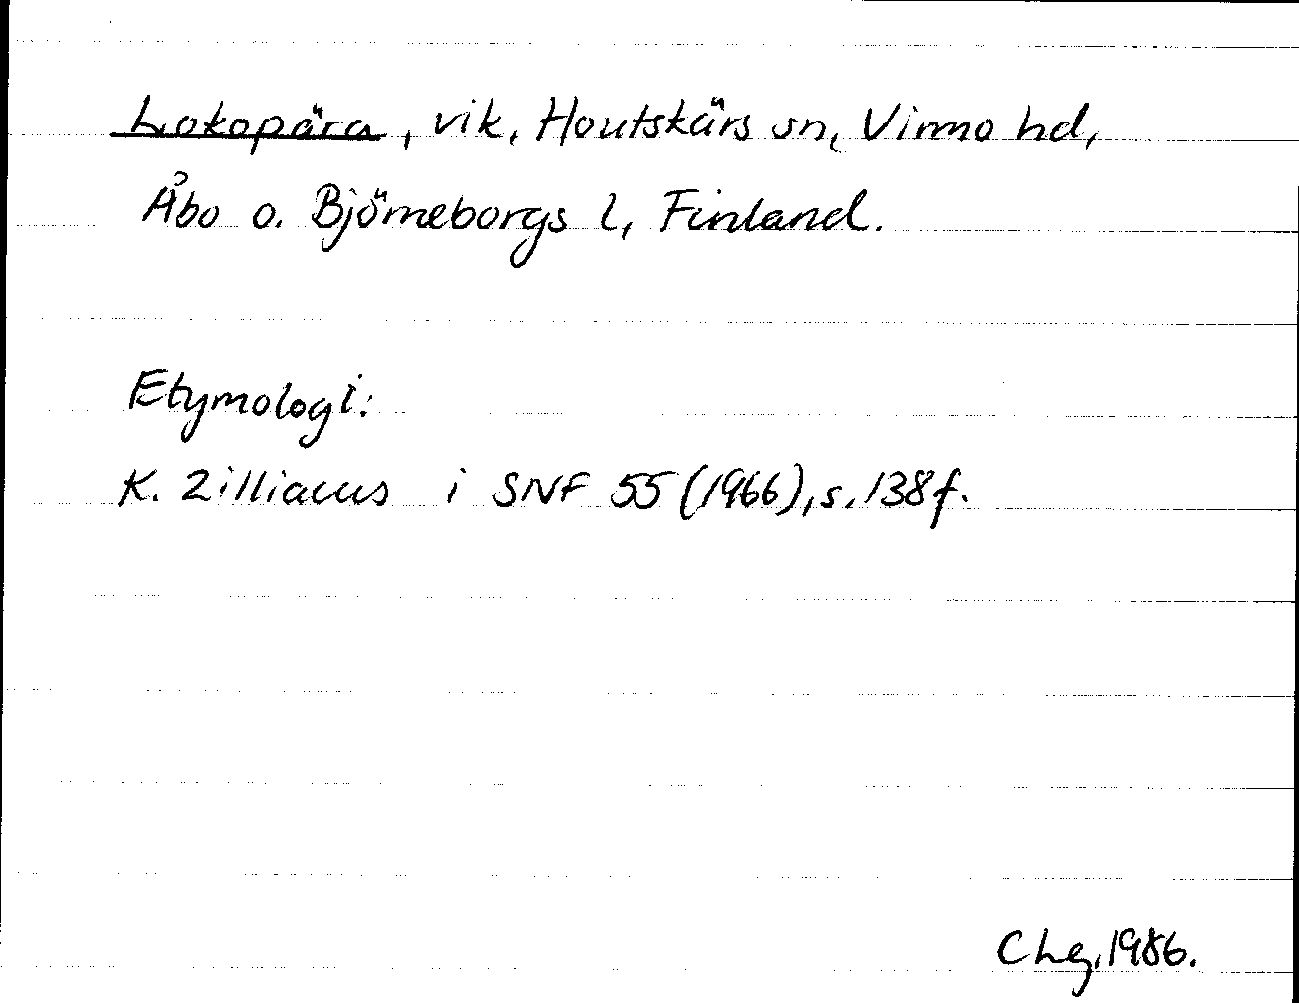 Lokopära, vik, Houtskärs sn, Virmo hd,
Åbo o. Björneborgs l, Finland.
Etymologi:
K. Zilliacus i SNF 55 (1966), s. 138 f.
Chg, 1986.